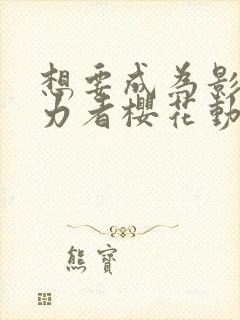 想要成為影
力者櫻花動
熊寶